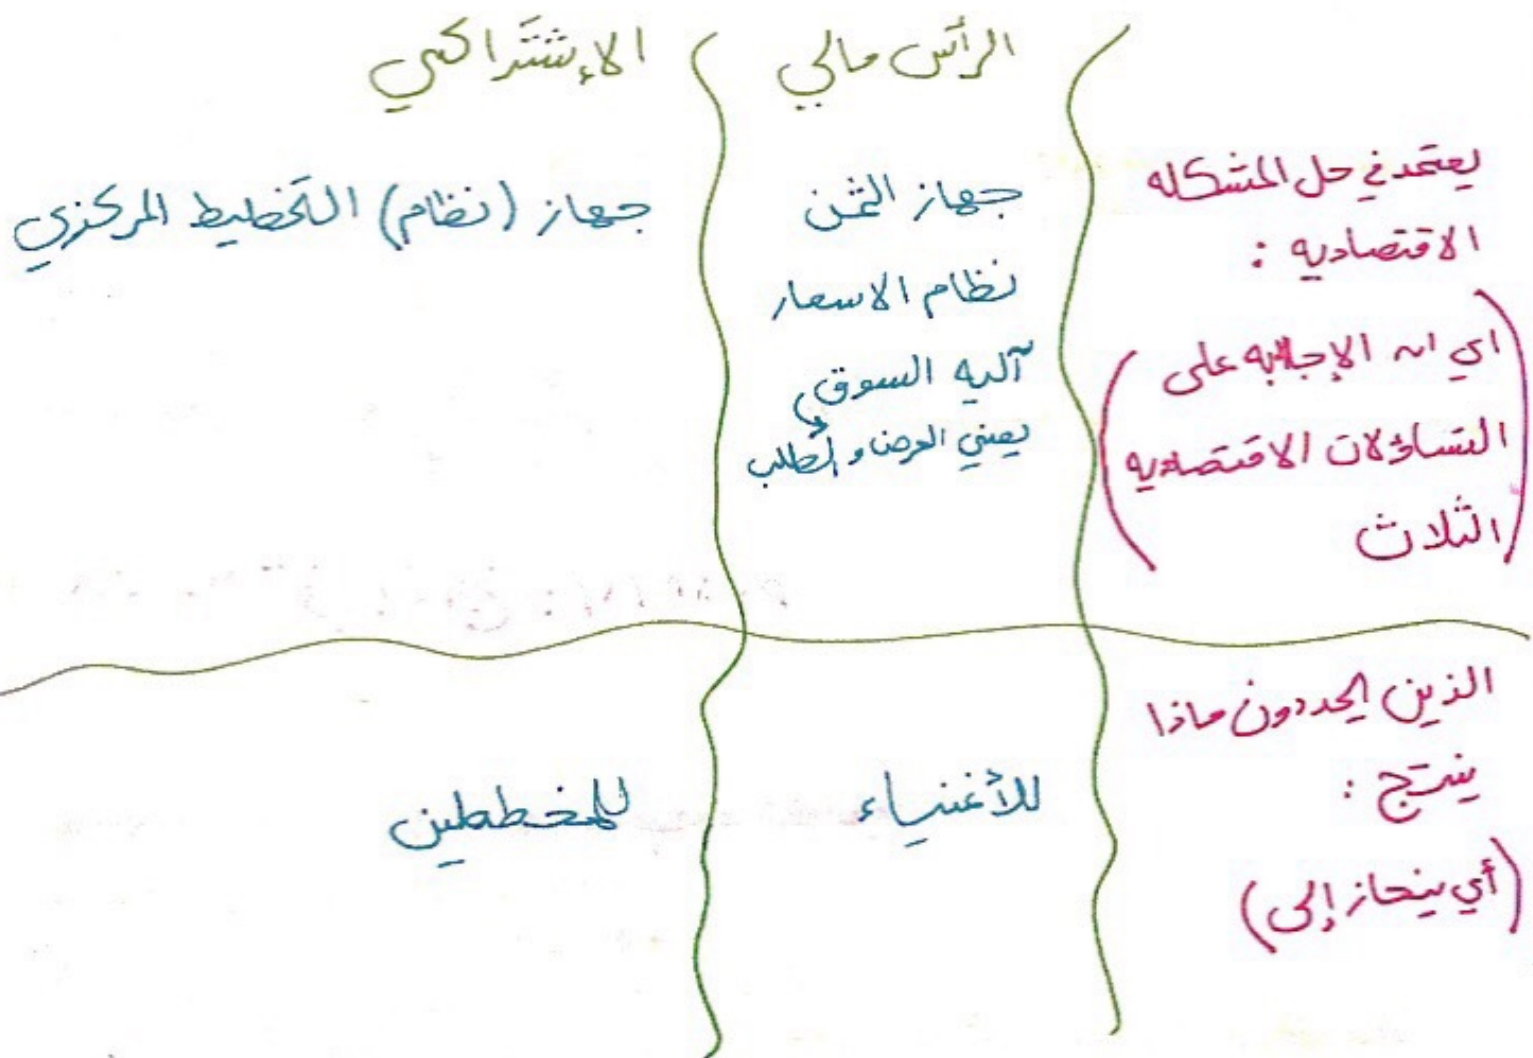 الرأس مالي
الإشتراكي
يعتمد في حل المشكله
الاقتصاديه :
(اي ان الإجابه على
التساؤلات الاقتصاديه
الثلاث)
جهاز الثمن
نظام الاسعار
آليه السوق
يعني العرض و الطلب
جهاز (نظام) التخطيط المركزي
الذين يحددون ماذا
ينتج :
(أي ينحاز إلى)
للأغنياء
للمخططين